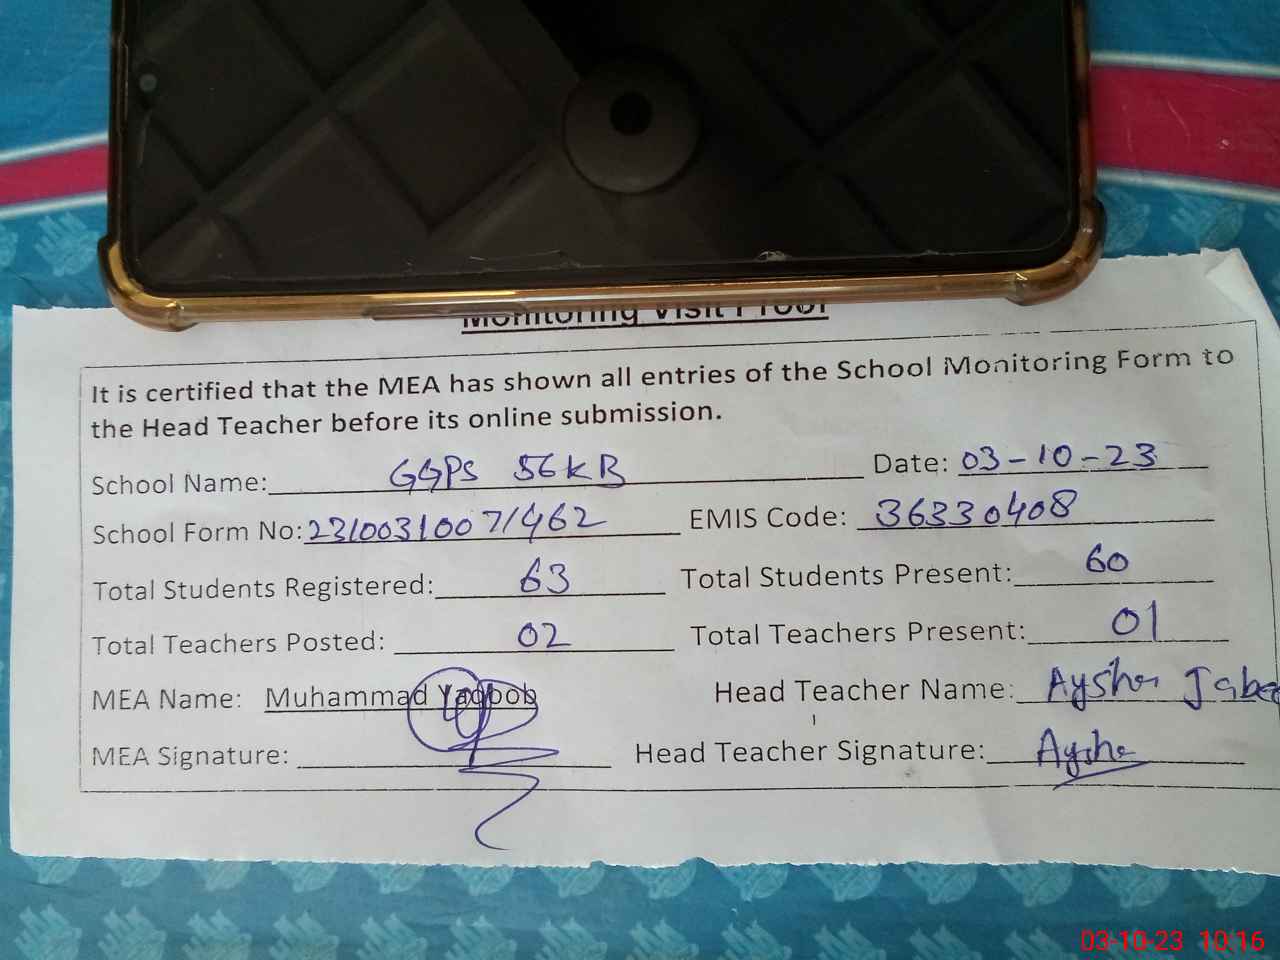 Monitoring Visit Proof
It is certified that the MEA has shown all entries of the School Monitoring Form to
the Head Teacher before its online submission.
School Name: GGPS 56KB Date: 03-10-23
School Form No: 23100310071462 EMIS Code: 36330408
Total Students Registered: 63 Total Students Present: 60
Total Teachers Posted: 02 Total Teachers Present: 01
MEA Name: Muhammad Yaqoob Head Teacher Name: Aysha
MEA Signature: Head Teacher Signature: Aysha
03-10-23 10:16